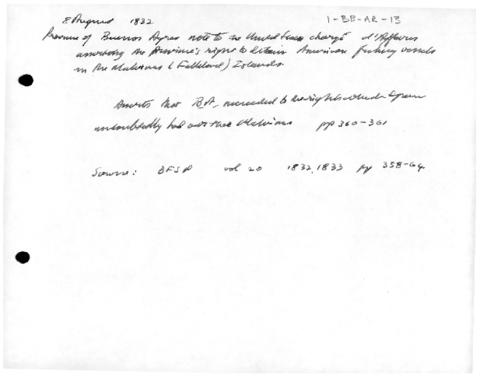 8 August 1832 1-BB-AR-13
Province of Buenos Ayres note to the United States chargé d'Affaires
answering the Province's right to detain American fishing vessels
in the Malvinas (Falkland) Islands
Asserts that B.A. succeeded to the rights which Spain
undoubtedly had over the Malvinas pp 360-361
Source: BFSP vol 20 1832, 1833 pp 358-64